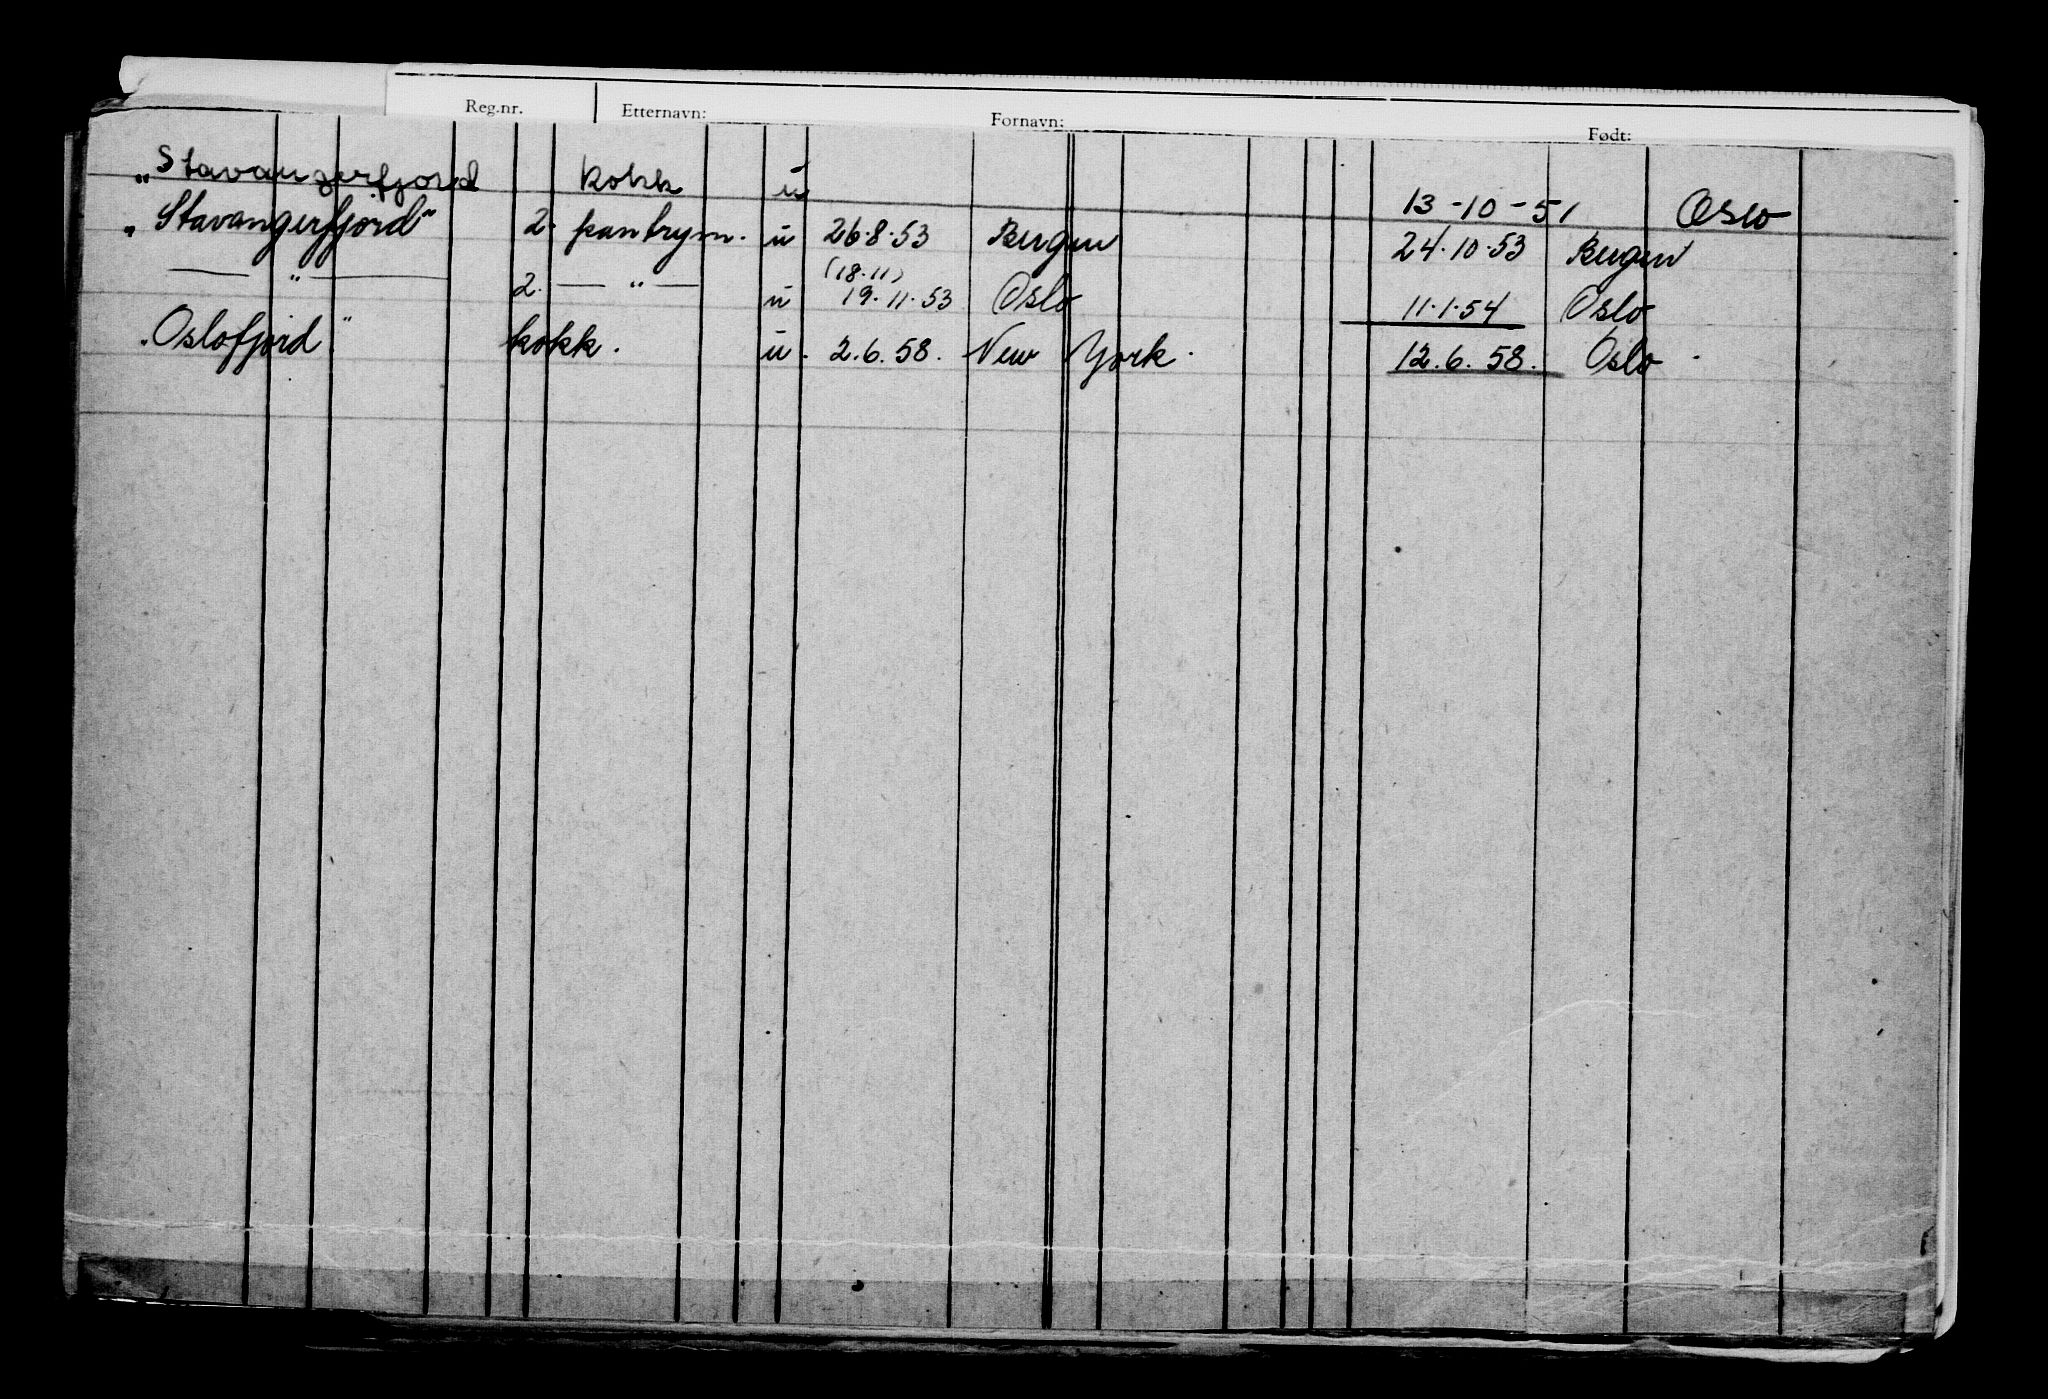 Reg.nr. Etternavn: Fornavn: Født:
„Stavangerfjord kokk u 13-10-51 Oslo
„Stavangerfjord" 2. pantrym. u 26.8.53 Bergen 24.10.53 Bergen
— " — 2. — " — u (18.11) 19.11.53 Oslo 11.1.54 Oslo
„Oslofjord" kokk. u. 2.6.58. New York. 12.6.58. Oslo.